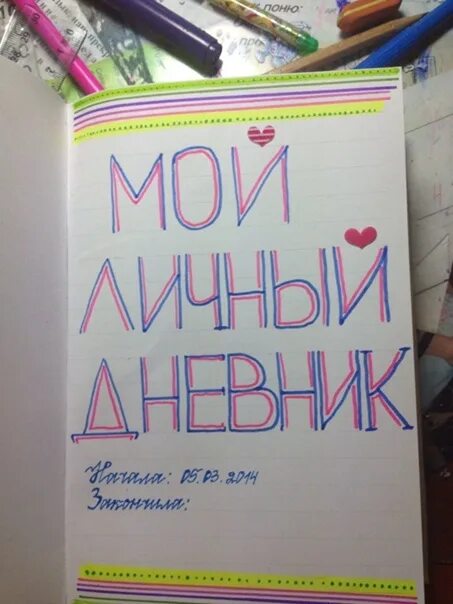 МОЙ
ЛИЧНЫЙ
ДНЕВНИК
Начала: 05.03.2014
Закончила: